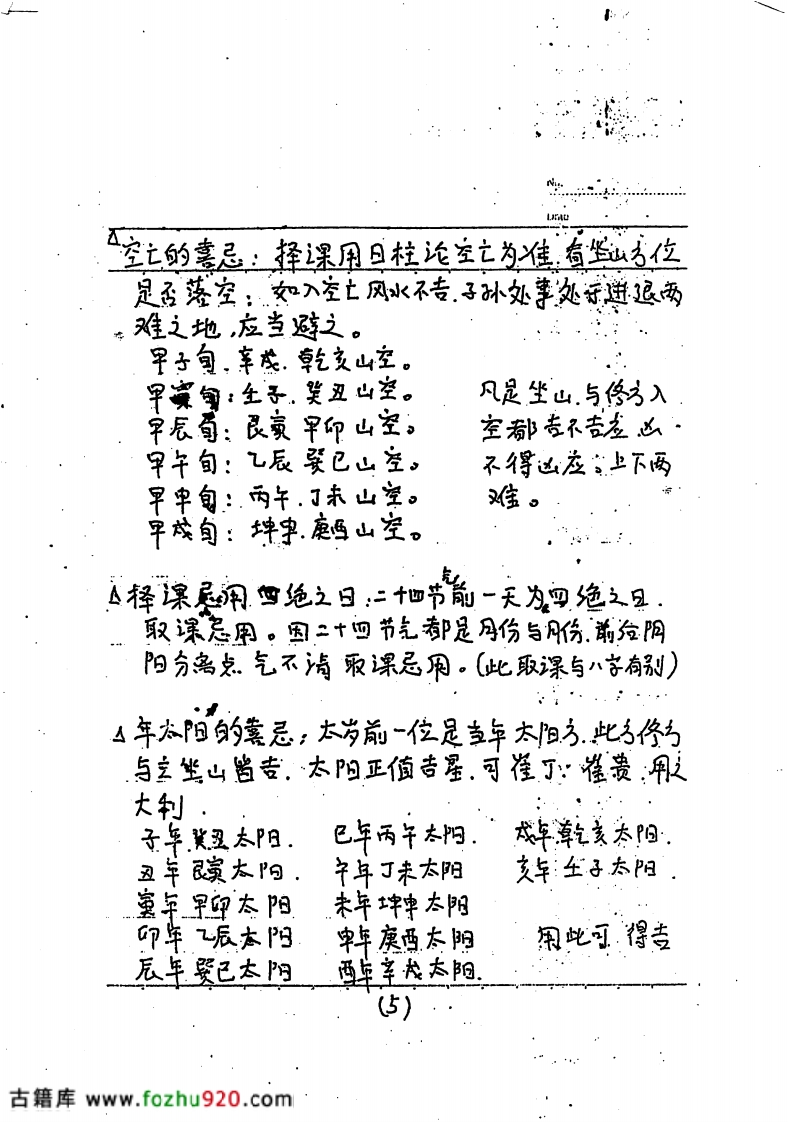 No.
Date
△空亡的喜忌：择课用日柱论空亡为准.看坐山方位
是否落空；如入空亡风水不吉.子孙处事处于进退两
难之地，应当避之。
甲子旬.辛戌.乾亥山空。
甲寅旬：壬子.癸丑山空。 凡是坐山.与修方入
甲辰旬：艮寅 甲卯山空。 空都吉不吉应.凶
甲午旬：乙辰 巽巳山空。 不得凶应；上下两
甲申旬：丙午.丁未山空。 难。
甲戌旬：坤申.庚酉山空。
△择课忌用四绝之日.二十四节气前一天为四绝之日.
取课忌用。因二十四节气都是月份与月份.前后阴
阳分离点 气不清 取课忌用。(此取课与八字有别)
△年太阳的喜忌；太岁前一位是当年太阳方.此方修方
与立坐山皆吉.太阳正值吉星.可崔丁；崔贵.用之
大利.
子年癸丑太阳. 巳年丙午太阳. 戌年乾亥太阳.
丑年艮寅太阳. 午年丁未太阳 亥年壬子太阳.
寅年甲卯太阳 未年坤申太阳
卯年乙辰太阳 申年庚酉太阳 用此可得吉
辰年巽巳太阳 酉年辛戌太阳.
(5)
古籍库 www.fozhu920.com